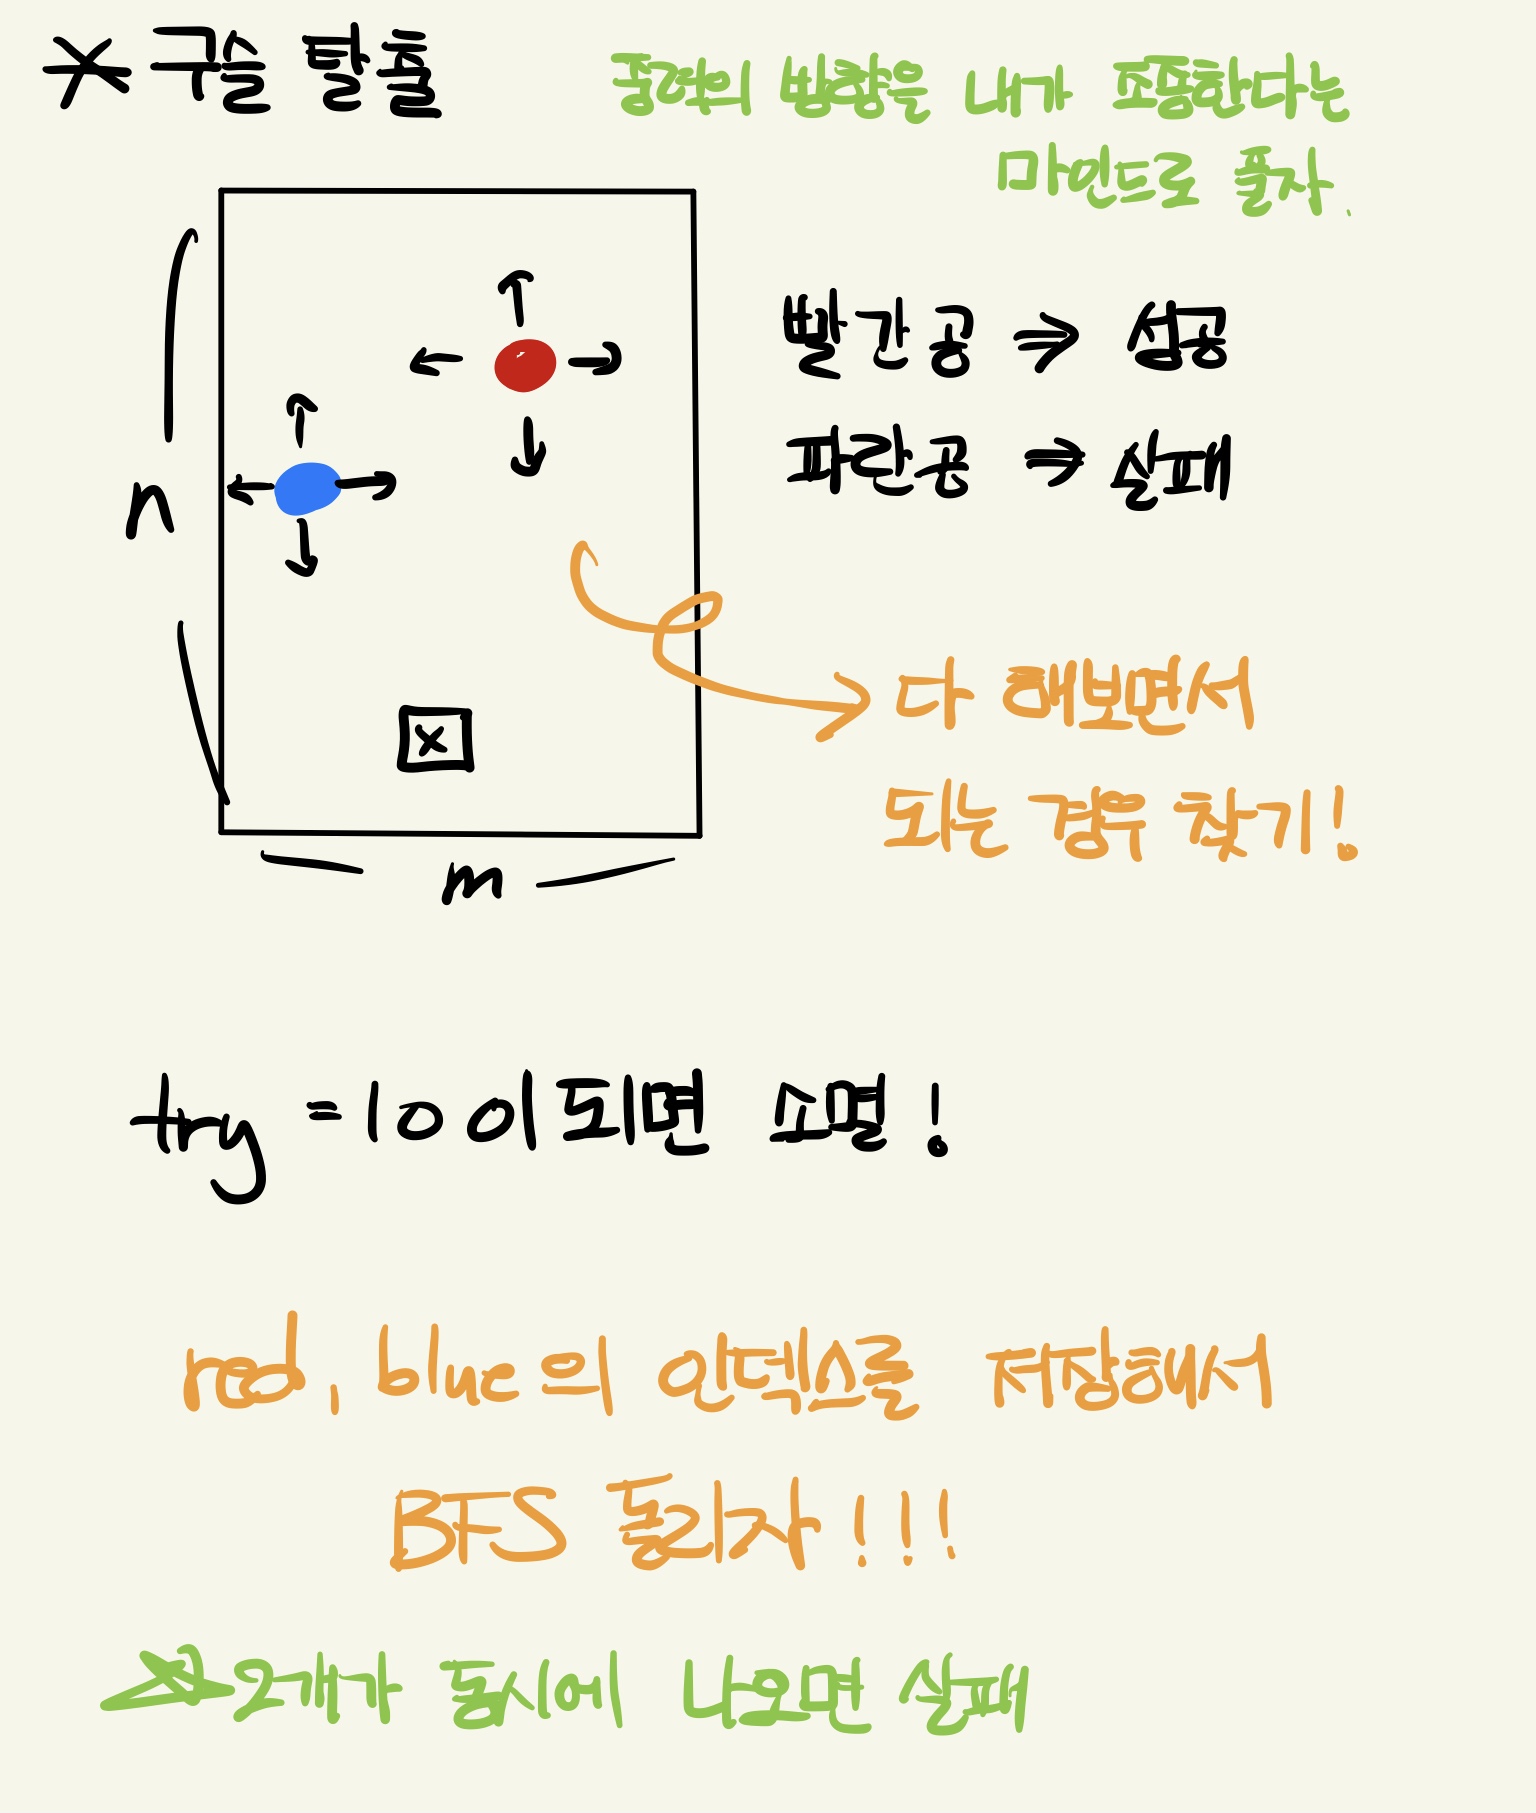 * 구슬 탈출
중력의 방향을 내가 조종한다는
마인드로 풀자.
빨간공 ⇒ 성공
파란공 ⇒ 실패
n
x
m
다 해보면서
되는 경우 찾기!
try = 10이되면 소멸!
red, blue의 인덱스를 저장해서
BFS 돌리자!!!
☆ 2개가 동시에 나오면 실패